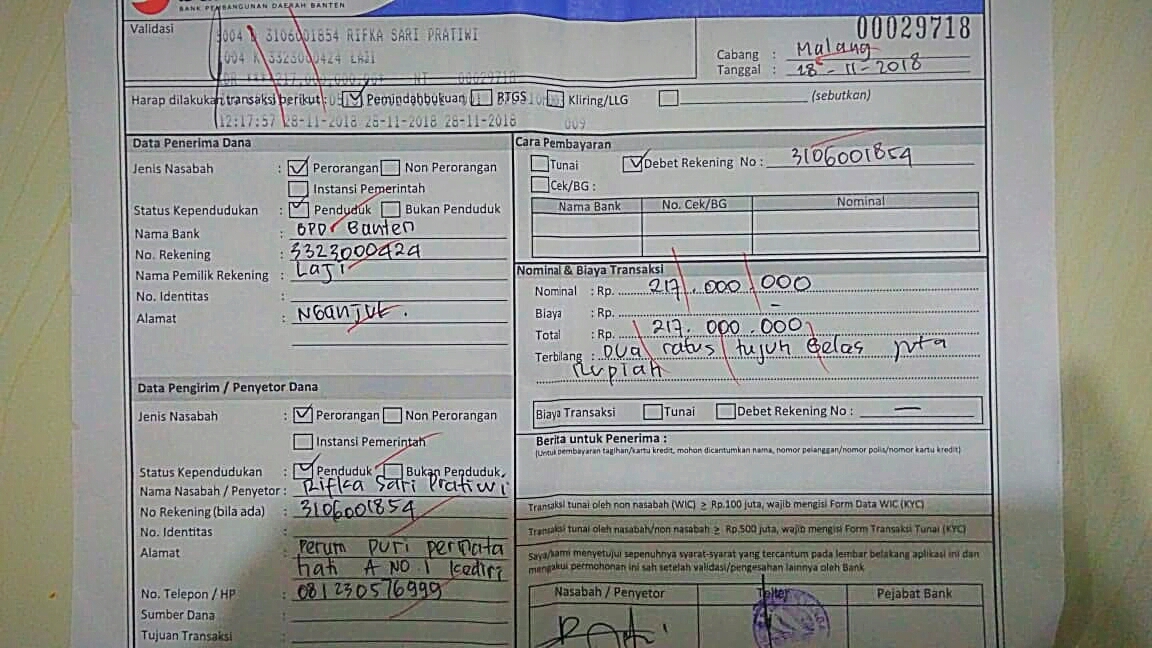 BANK PEMBANGUNAN DAERAH BANTEN
Validasi
3004 D 3106001854 RIFKA SARI PRATIWI
3004 K 3323000424 LAJI
00029718
00029718
Cabang : Malang
Tanggal : 28 - 11 - 2018
Harap dilakukan transaksi berikut : Pemindahbukuan RTGS Kliring/LLG (sebutkan)
12:17:57 28-11-2018 28-11-2018 28-11-2018 009
Data Penerima Dana
Jenis Nasabah : Perorangan Non Perorangan
Instansi Pemerintah
Status Kependudukan : Penduduk Bukan Penduduk
Nama Bank : BPD Banten
No. Rekening : 3323000424
Nama Pemilik Rekening : Laji
No. Identitas :
Alamat : NGANJUK .
Data Pengirim / Penyetor Dana
Jenis Nasabah : Perorangan Non Perorangan
Instansi Pemerintah
Status Kependudukan : Penduduk Bukan Penduduk
Nama Nasabah / Penyetor : Rifka Sari Pratiwi
No Rekening (bila ada) : 3106001854
No. Identitas :
Alamat : Perum Puri permata
hati A NO.1 Kediri
No. Telepon / HP : 081230576999
Sumber Dana :
Tujuan Transaksi :
Cara Pembayaran
Tunai Debet Rekening No : 3106001854
Cek/BG :
Nama Bank No. Cek/BG Nominal
Nominal & Biaya Transaksi
Nominal : Rp. 217.000.000
Biaya : Rp. -
Total : Rp. 217.000.000
Terbilang : Dua ratus tujuh belas juta
Rupiah
Biaya Transaksi Tunai Debet Rekening No : —
Berita untuk Penerima :
(Untuk pembayaran tagihan/kartu kredit, mohon dicantumkan nama, nomor pelanggan/nomor polis/nomor kartu kredit)
Transaksi tunai oleh non nasabah (WIC) ≥ Rp.100 juta, wajib mengisi Form Data WIC (KYC)
Transaksi tunai oleh nasabah/non nasabah ≥ Rp.500 juta, wajib mengisi Form Transaksi Tunai (KYC)
Saya/kami menyetujui sepenuhnya syarat-syarat yang tercantum pada lembar belakang aplikasi ini dan
mengakui permohonan ini sah setelah validasi/pengesahan lainnya oleh Bank
Nasabah / Penyetor Teller Pejabat Bank